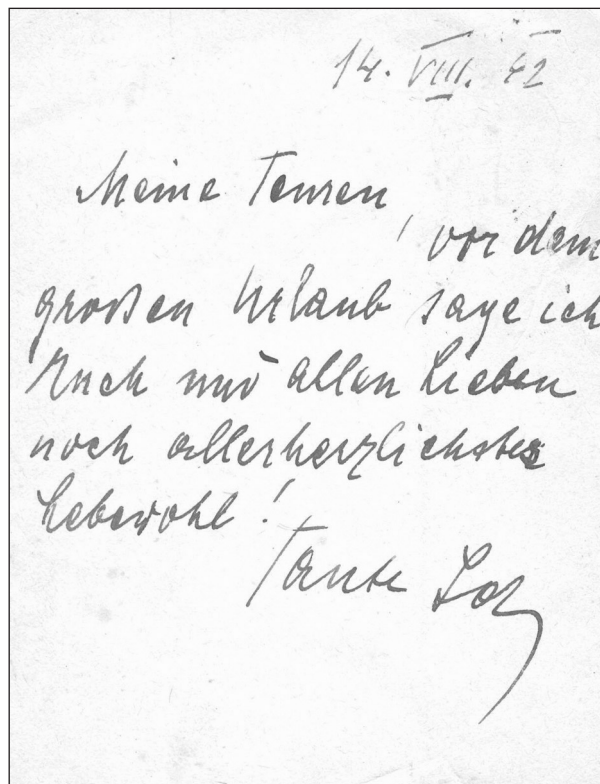 14. VIII. 42
Meine Teuren,
vor dem
großen Urlaub sage ich
Euch und allen Lieben
noch allerherzlichstes
Lebewohl!
Tante